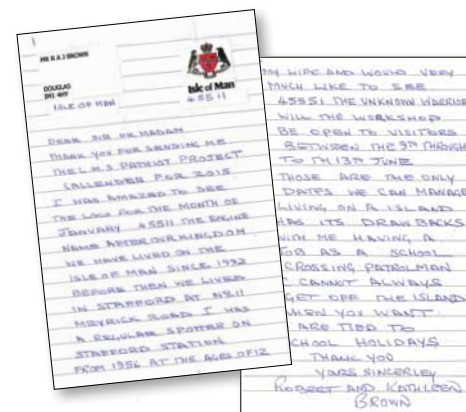 MR R A J BROWN
DOUGLAS
IM1 4HY
ISLE OF MAN
Isle of Man
45511
DEAR SIR OR MADAM
THANK YOU FOR SENDING ME
THE L.M.S PATRIOT PROJECT
CALLENDER FOR 2015
I WAS AMAZED TO SEE
THE LOCO FOR THE MONTH OF
JANUARY 45511 THE ENGINE
NAME AFTER OUR KINGDOM
WE HAVE LIVED ON THE
ISLE OF MAN SINCE 1992
BEFORE THEN WE LIVED
IN STAFFORD AT NO.11
MEYRICK ROAD I WAS
A REGULAR SPOTTER ON
STAFFORD STATION
FROM 1956 AT THE AGES OF 12
MY WIFE AND WOULD VERY
MUCH LIKE TO SEE
45551 THE UNKNOWN WARRIOR
WILL THE WORKSHOP
BE OPEN TO VISITORS
BETWEEN THE 9TH THROUGH
TO TH 13TH JUNE
THOSE ARE THE ONLY
DATES WE CAN MANAGE
LIVING ON A ISLAND
HAS ITS DRAW BACKS
WITH ME HAVING A
JOB AS A SCHOOL
CROSSING PATROLMAN
I CANNOT ALWAYS
GET OFF THE ISLAND
WHEN YOU WANT
ARE TIED TO
SCHOOL HOLIDAYS
THANK YOU
YOURS SINCERLEY
ROBERT AND KATHLEEN
BROWN